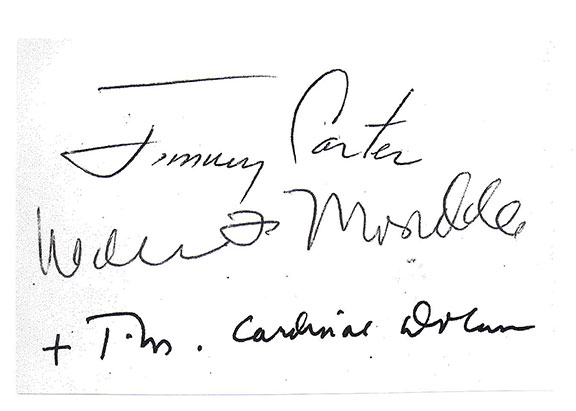 Jimmy Carter
Walter F Mondale
+ Tim. Cardinal Dolan